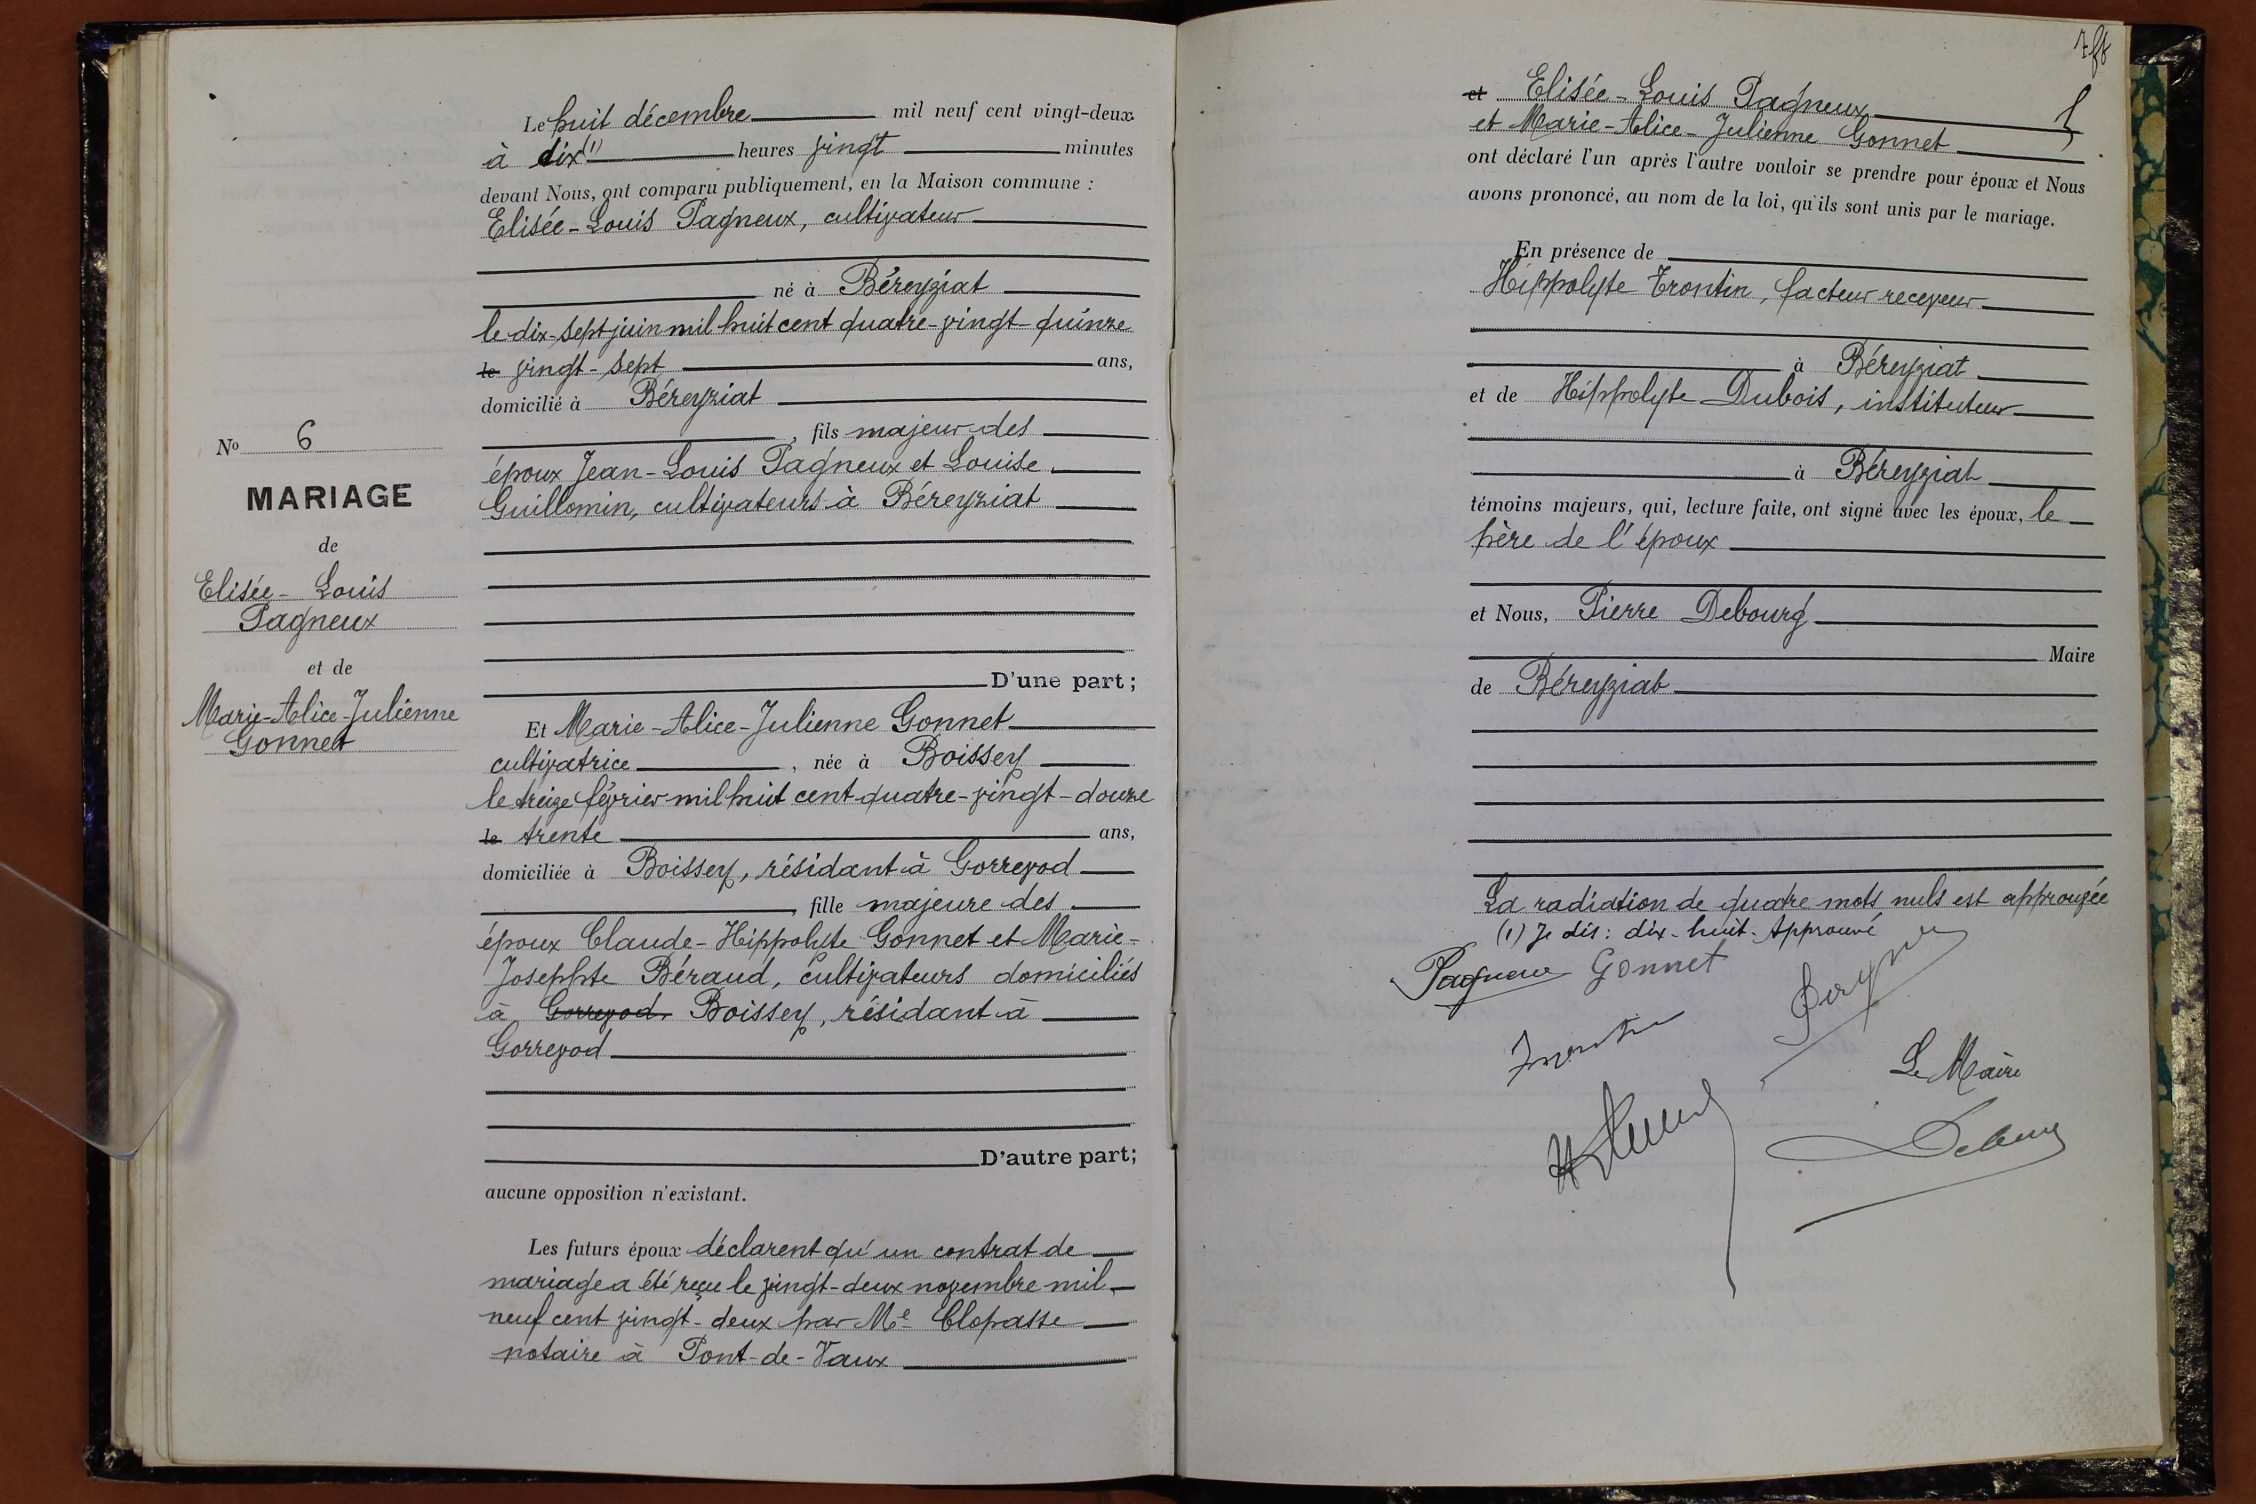 Le huit décembre mil neuf cent vingt-deux
à dix (1) heures vingt minutes
devant Nous, ont comparu publiquement, en la Maison commune :
Elisée-Louis Pagneux, cultivateur
né à Béreyziat
le dix-sept juin mil huit cent quatre-vingt-quinze
le vingt-sept ans,
domicilié à Béreyziat
, fils majeur des
époux Jean-Louis Pagneux et Louise
Guillomin, cultivateurs à Béreyziat
D'une part ;
No 6
MARIAGE
de
Elisée-Louis
Pagneux
et de
Marie-Alice-Julienne
Gonnet
Et Marie-Alice-Julienne Gonnet
cultivatrice , née à Boissey
le treize février mil huit cent quatre-vingt-douze
le trente ans,
domiciliée à Boissey, résidant à Gorrevod
, fille majeure des
époux Claude-Hippolyte Gonnet et Marie-
Josephte Béraud, cultivateurs domiciliés
à Gorrevod Boissey, résidant à
Gorrevod
D'autre part;
aucune opposition n'existant.
Les futurs époux déclarent qu'un contrat de
mariage a été reçu le vingt-deux novembre mil
neuf cent vingt-deux par Me Clopasse
notaire à Pont-de-Vaux
et Elisée-Louis Pagneux
et Marie-Alice-Julienne Gonnet
ont déclaré l'un après l'autre vouloir se prendre pour époux et Nous
avons prononcé, au nom de la loi, qu'ils sont unis par le mariage.
En présence de
Hippolyte Trontin, facteur receveur
à Béreyziat
et de Hippolyte Dubois, instituteur
à Béreyziat
témoins majeurs, qui, lecture faite, ont signé avec les époux, le
père de l'époux
et Nous, Pierre Debourg
Maire
de Béreyziat
La radiation de quatre mots nuls est approuvée
(1) Je dis : dix-huit. Approuvé
Pagneux Gonnet
Le Maire